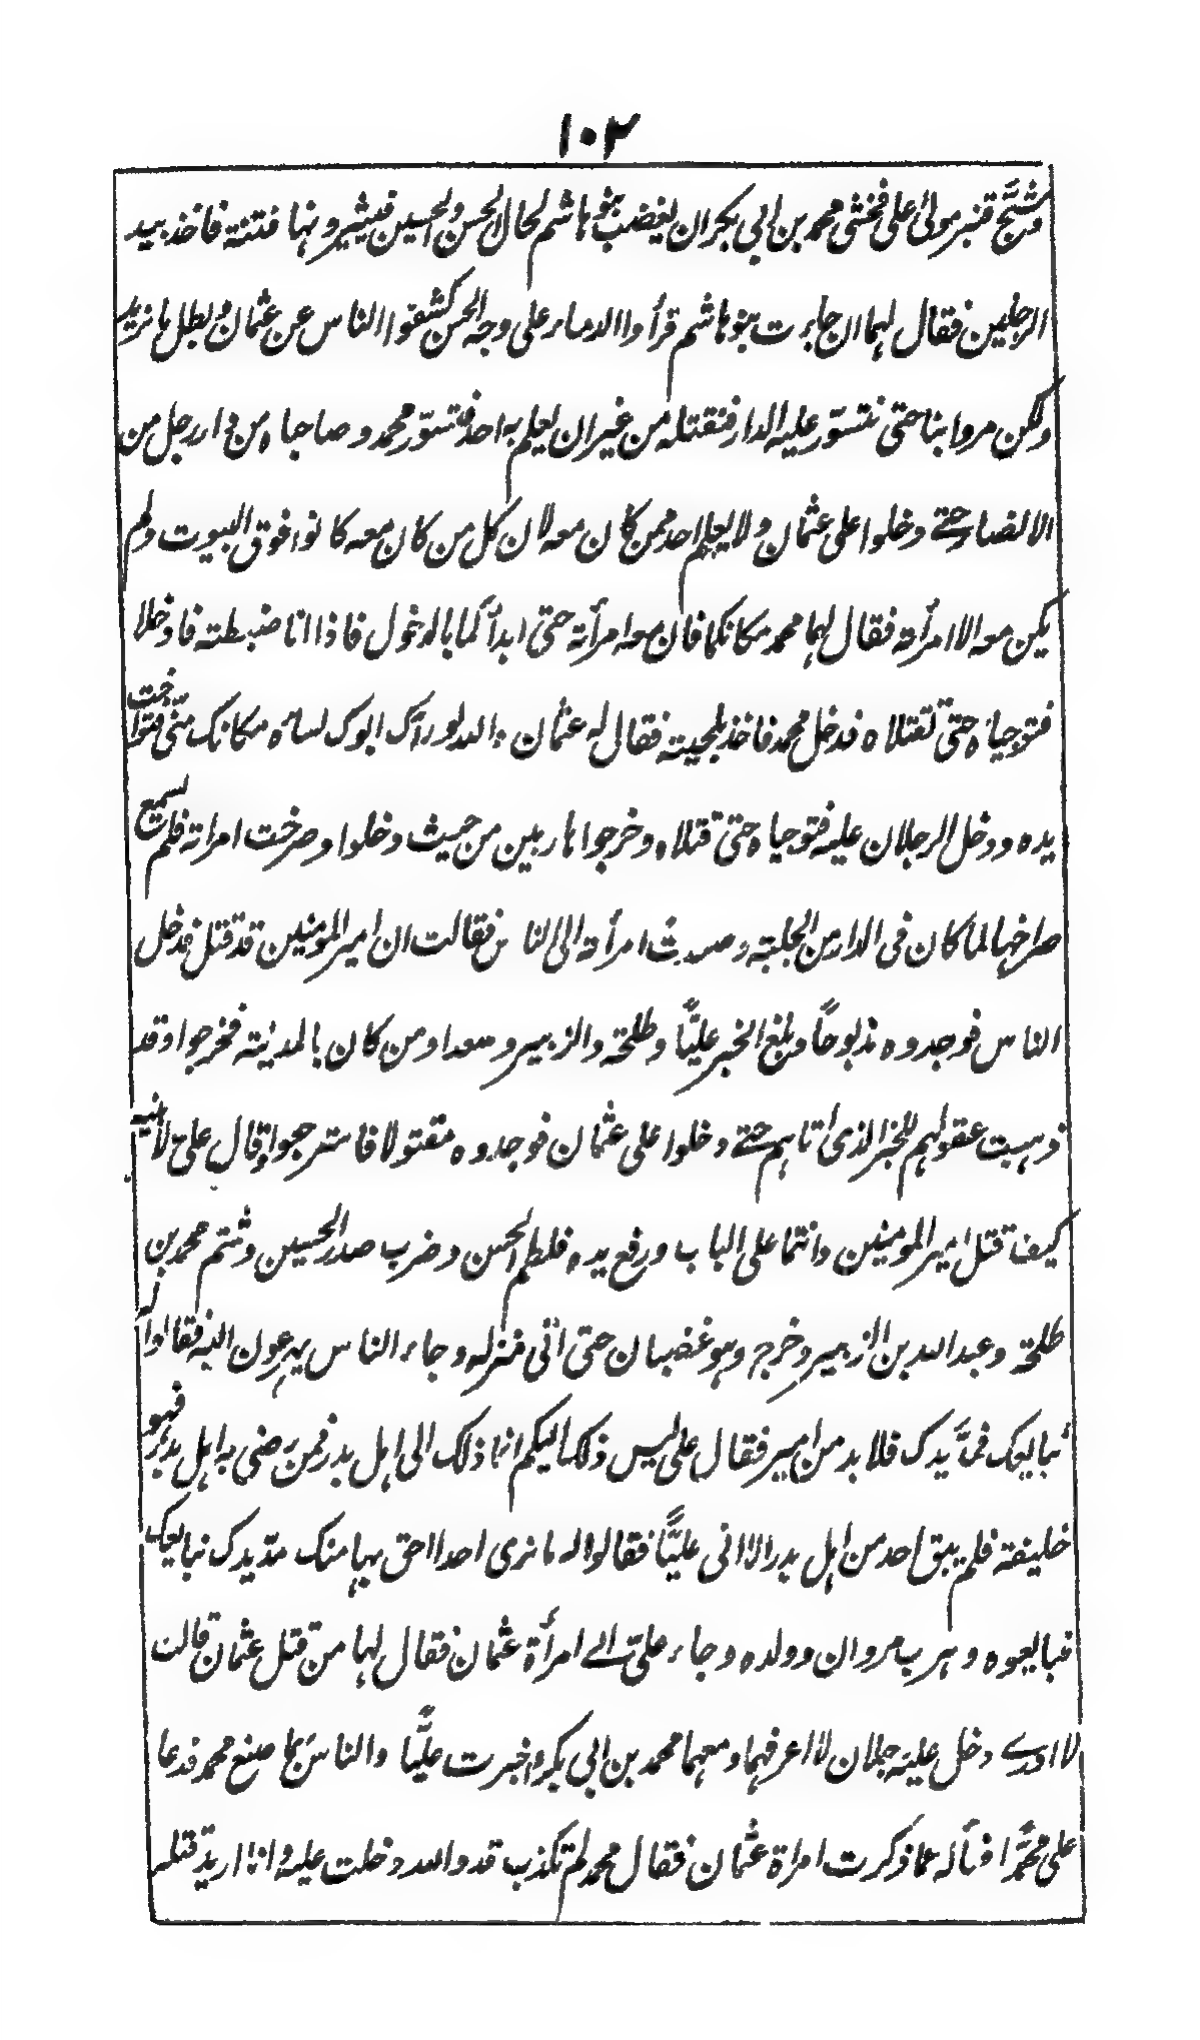 ١٠٢
وشُجَّ قنبر مولىٰ علي فخشي محمد بن ابي بكر ان يغضب بنو هاشم لحال الحسن والحسين فيثيرونها فتنة فاخذ بيد
الرجلين فقال لهما ان جاءت بنو هاشم فرأوا الدماء على وجه الحسن كشفوا الناس عن عثمان وبطل ما نريد
ولكن مروا بنا حتى نتسوّر عليه الدار فنقتله من غير ان يعلم به احد فتسوّر محمد وصاحباه من دار رجل من
الانصار حتے دخلوا على عثمان ولا يعلم احد ممن كان معه لان كل من كان معه كانوا فوق البيوت ولم
يكن معه الا امرأته فقال لهما محمد مكانكما فان معه امرأته حتى ابدأكما بالدخول فاذا انا ضبطته فادخلا
فتوجياه حتى تقتلاه فدخل محمد فاخذ بلحيته فقال له عثمان والله لو راٰك ابوك لساءه مكانك منّي فتراخت
يده ودخل الرجلان عليه فتوجياه حتى قتلاه وخرجوا هاربين من حيث دخلوا وصرخت امراته فلم يسمع
صراخها لما كان في الدار من الجلبة وصعدت امرأته الى الناس فقالت ان امير المومنين قد قتل فدخل
الناس فوجدوه مذبوحًا وبلغ الخبر عليًّا وطلحة والزبير وسعدا ومن كان بالمدينة فخرجوا وقد
ذهبت عقولهم للخبر الذي اتاهم حتے دخلوا على عثمان فوجدوه مقتولا فاسترجعوا وقال علي لابنيه
كيف قتل امير المومنين وانتما على الباب ورفع يده فلطم الحسن وضرب صدر الحسين وشتم محمد بن
طلحة وعبد الله بن الزبير وخرج وهو غضبان حتى اتى منزله وجاء الناس يهرعون اليه فقالوا له
نبايعك فمدّ يدك فلا بد من امير فقال علي ليس ذلك اليكم انما ذلك الى اهل بدر فمن رضي به اهل بدر فهو
خليفة فلم يبق احد من اهل بدر الا اتى عليًّا فقالوا له ما نرى احدا احق بها منك مدّ يدك نبايعك
فبايعوه وهرب مروان وولده وجاء عليّ الے امرأة عثمان فقال لها من قتل عثمان قالت
لا ادرے دخل عليه رجلان لا اعرفهما ومعهما محمد بن ابي بكر واخبرت عليًّا والناس بما صنع محمد فدعا
علي محمدًا فسأله عما ذكرت امراة عثمان فقال محمد لم تكذب قد والله دخلت عليه وانا اريد قتله